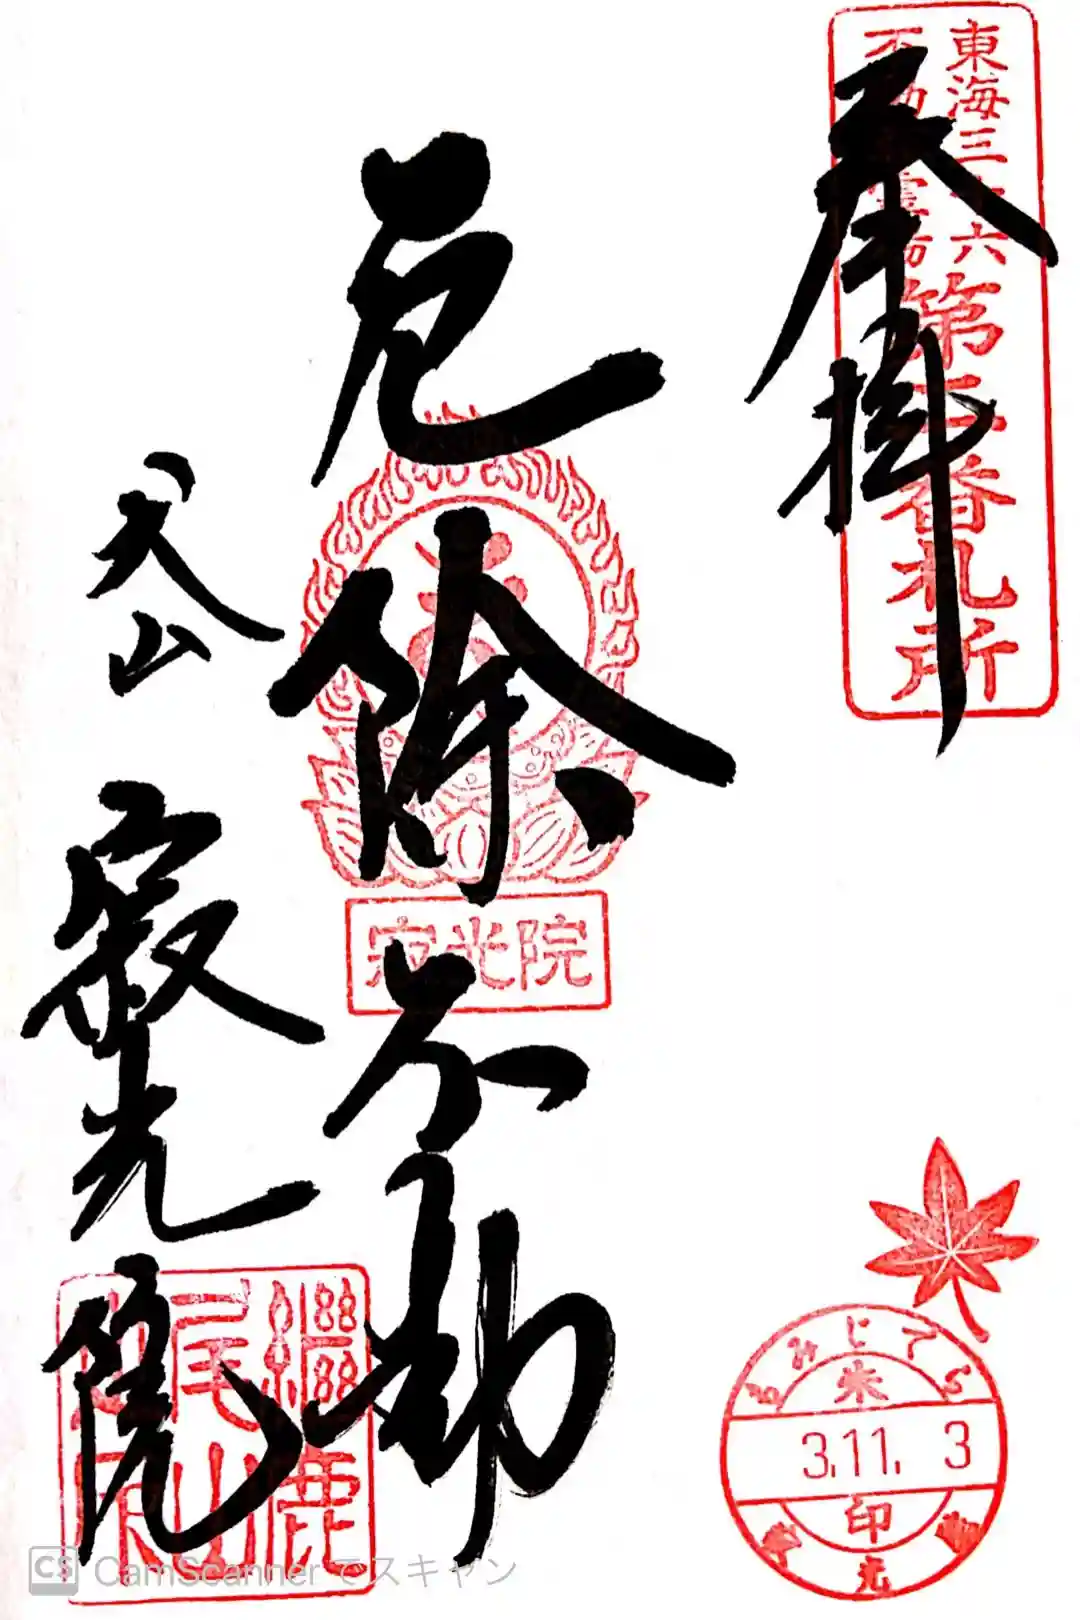 東海三十六
不動尊霊場
第二番札所
奉拝
厄除
不動
犬山
寂光院
寂光院
繼鹿
尾山
もみじでら
朱
3.11.3
印
CamScanner でスキャン